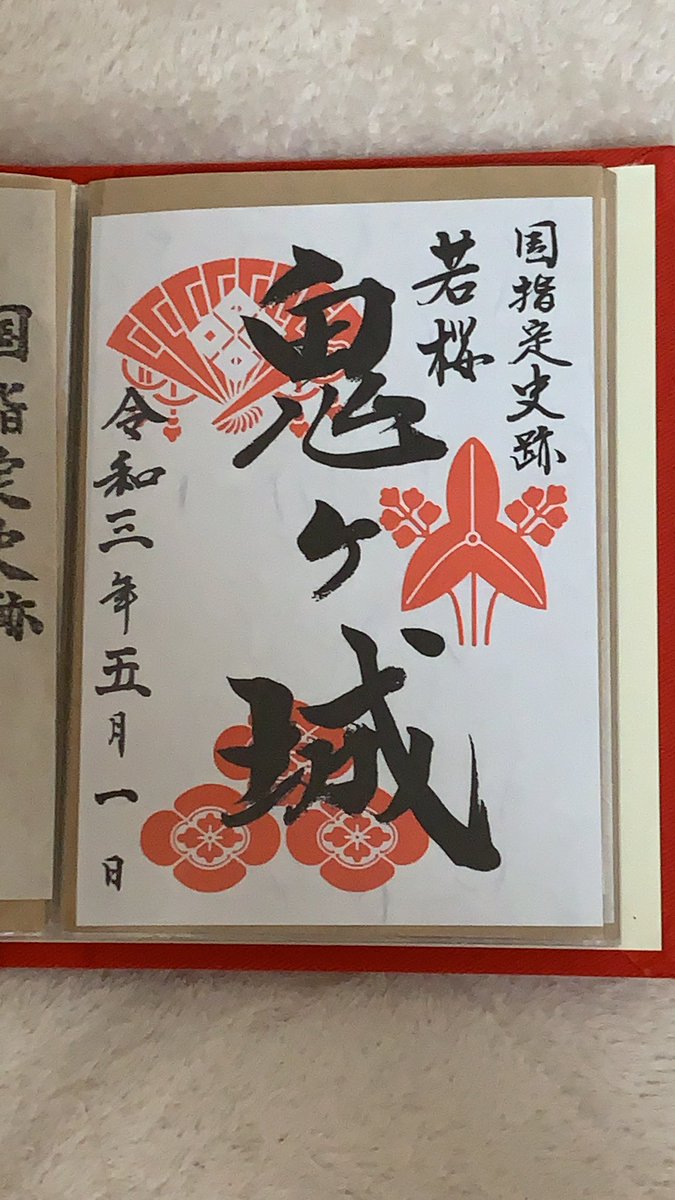 国指定史跡
若桜
鬼ヶ城
令和三年五月一日
国指定史跡